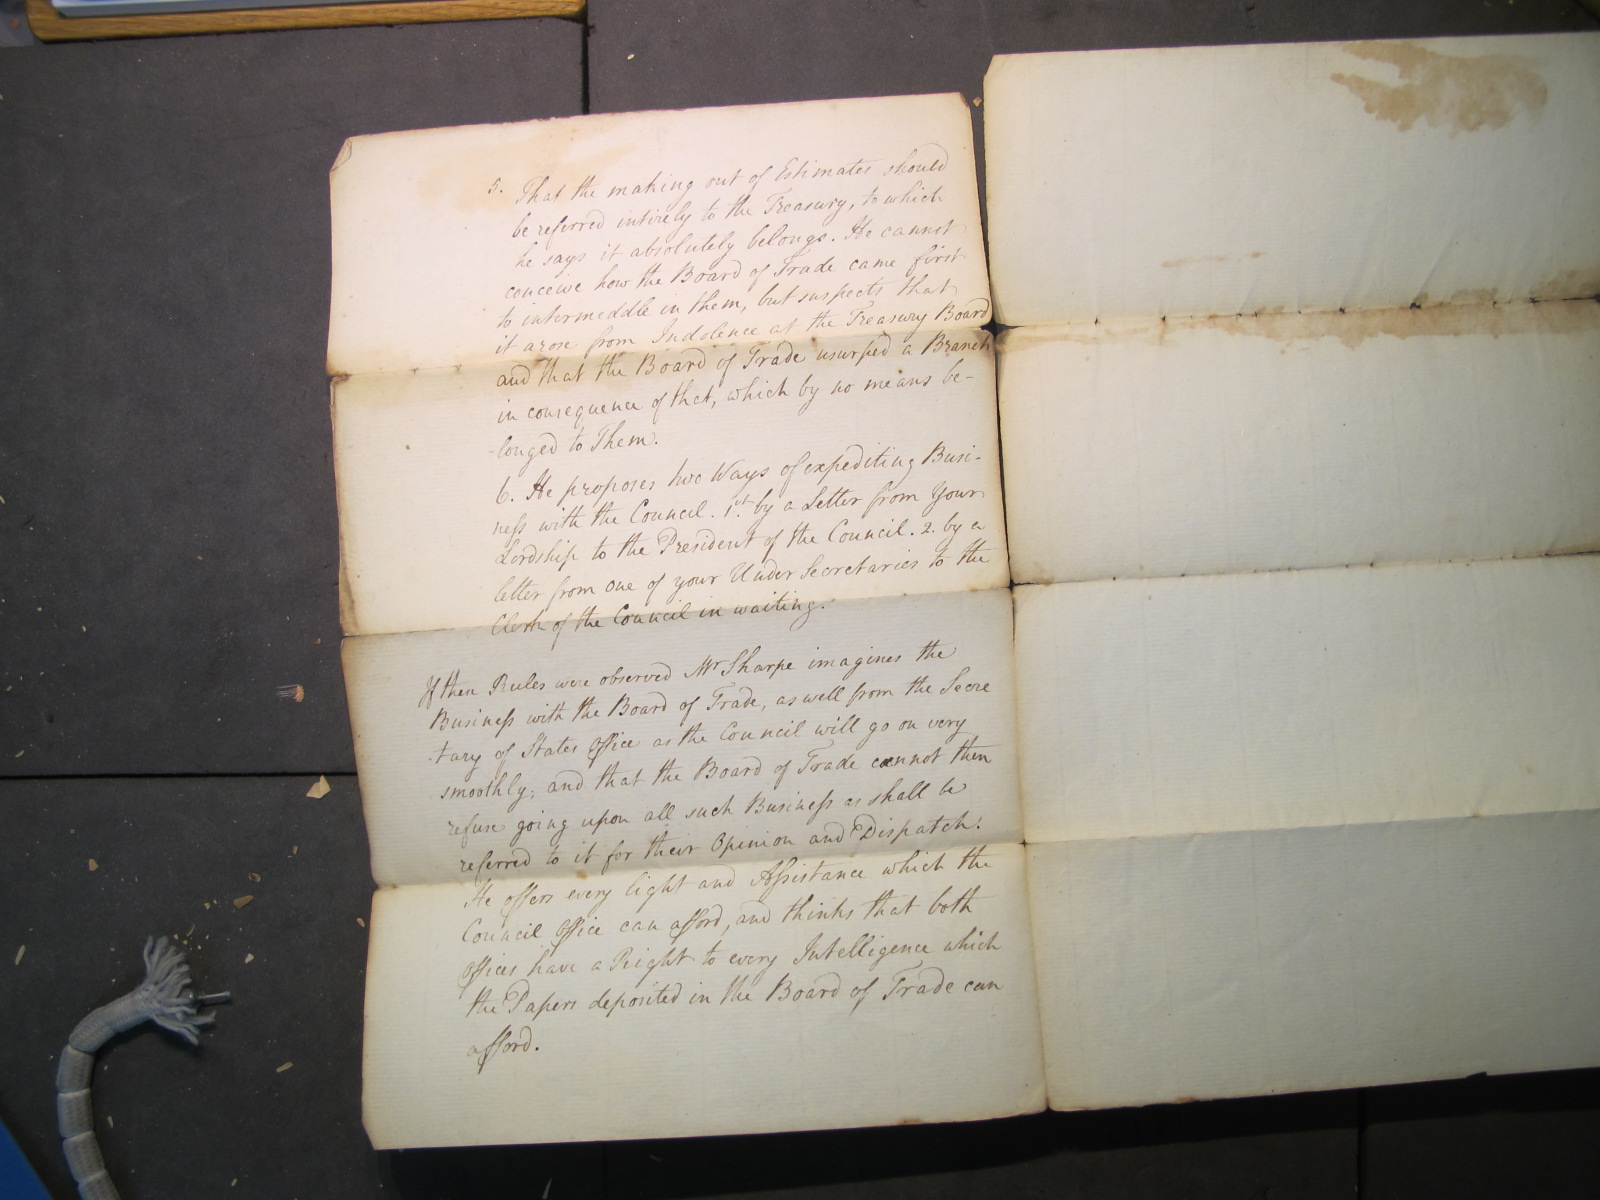 5. That the making out of Estimates should
be referred intirely to the Treasury, to which
he says it absolutely belongs. He cannot
conceive how the Board of Trade came first
to intermeddle in them, but suspects that
it arose from Indolence at the Treasury Board
and that the Board of Trade usurped a Branch
in consequence of that, which by no means be-
-longed to Them.
6. He proposes two Ways of expediting Busi-
ness with the Council. 1st. by a Letter from Your
Lordship to the President of the Council. 2. by a
letter from one of your Under Secretaries to the
Clerk of the Council in waiting.
If these Rules were observed Mr Sharpe imagines the
Business with the Board of Trade, as well from the Secre
tary of States Office as the Council will go on very
smoothly; and that the Board of Trade cannot then
refuse going upon all such Business as shall be
referred to it for their Opinion and Dispatch.
He offers every light and Assistance which the
Council Office can afford, and thinks that both
Offices have a Right to every Intelligence which
the Papers deposited in the Board of Trade can
afford.